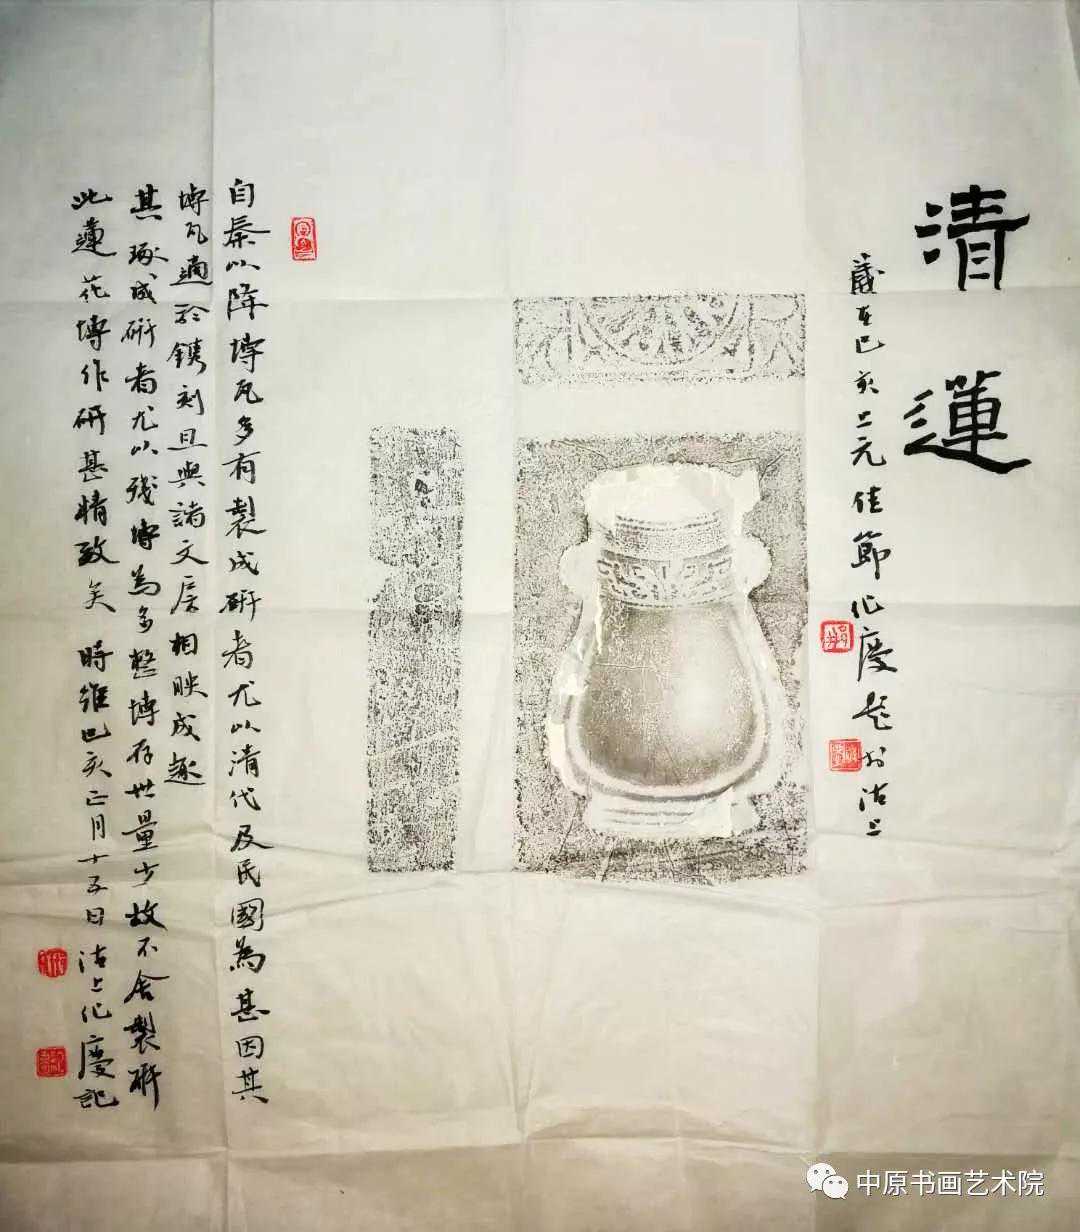 清蓮
歲在己亥上元佳節作慶題於沽上
自秦以降塼瓦多有製成硏者尤以清代及民國為甚因其
塼瓦適於鐫刻且與諸文房相映成趣
其琢成硏者尤以殘塼為多整塼存世量少故不舍製硏
此蓮花塼作硏甚精致矣時維己亥正月十五日沽上作慶記
中原书画艺术院